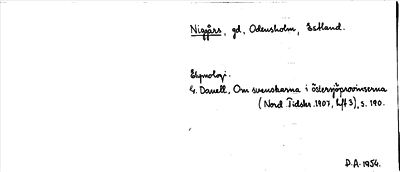 Niggårs, gd, Odensholm, Estland.
Etymologi.
G. Danell, Om svenskarna i östersjöprovinserna
(Nord Tidskr. 1907, hft 3), s. 190.
D.A. 1954.